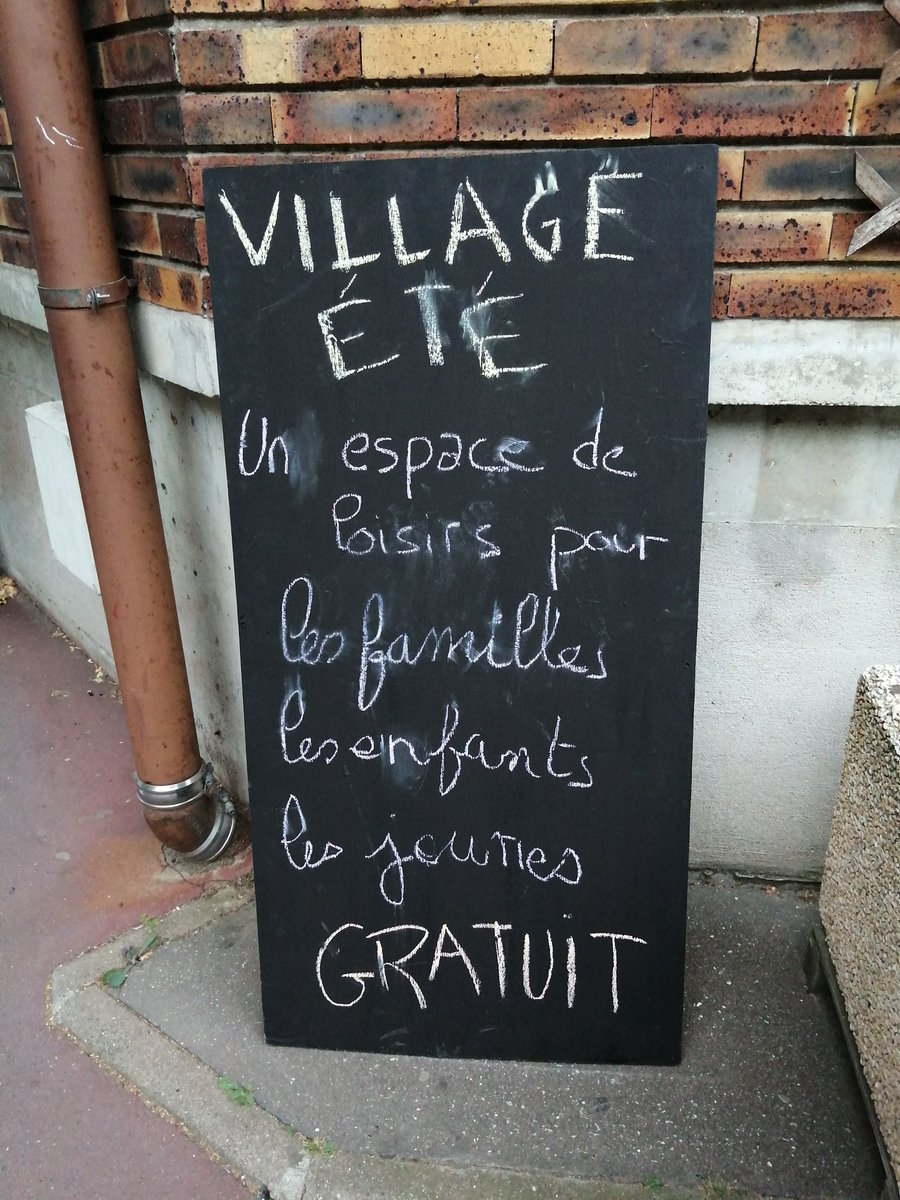 VILLAGE
ÉTÉ
Un espace de
loisirs pour
les familles
les enfants
les jeunes
GRATUIT